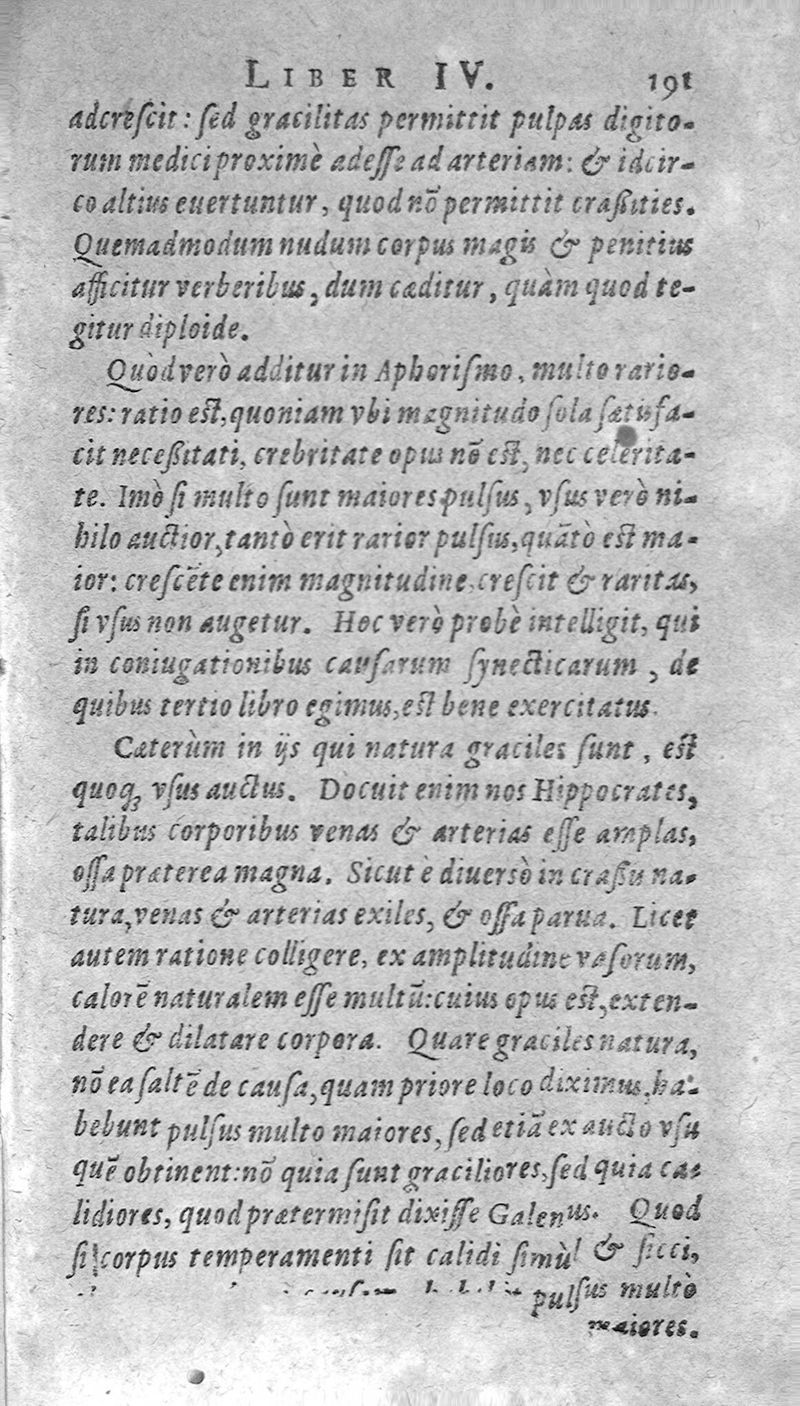 LIBER IV. 191
adcrescit: sed gracilitas permittit pulpas digito-
rum medici proximè adesse ad arteriam: & idcir-
co altius euertuntur, quod nõ permittit crassities.
Quemadmodum nudum corpus magis & penitius
afficitur verberibus, dum cæditur, quàm quod te-
gitur diploide.
Quòd verò additur in Aphorismo, multo rario-
res: ratio est, quoniam vbi magnitudo sola satisfa-
cit necessitati, crebritate opus nõ est, nec celerita-
te. Imò si multo sunt maiores pulsus, vsus verò ni-
hilo auctior, tantò erit rarior pulsus, quãtò est ma-
ior: crescẽte enim magnitudine, crescit & raritas,
si vsus non augetur. Hoc verò probè intelligit, qui
in coniugationibus causarum synecticarum, de
quibus tertio libro egimus, est bene exercitatus.
Cæterùm in ijs qui natura graciles sunt, est
quoq; vsus auctus. Docuit enim nos Hippocrates,
talibus corporibus venas & arterias esse amplas,
ossa præterea magna. Sicut è diuersò in crassis na-
tura, venas & arterias exiles, & ossa parua. Licet
autem ratione colligere, ex amplitudine vasorum,
calorẽ naturalem esse multũ: cuius opus est, exten-
dere & dilatare corpora. Quare graciles natura,
nõ ea saltẽ de causa, quam priore loco diximus, ha-
bebunt pulsus multo maiores, sed etiã ex aucto vsu
quẽ obtinent: nõ quia sunt graciliores, sed quia ca-
lidiores, quod prætermisit dixisse Galenus. Quod
si corpus temperamenti sit calidi simùl & sicci,
pulsus multò
maiores.